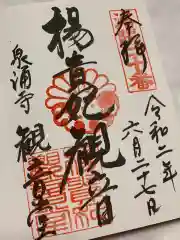 奉拝
令和二年
六月二十七日
楊貴妃観音
泉涌寺
観音堂